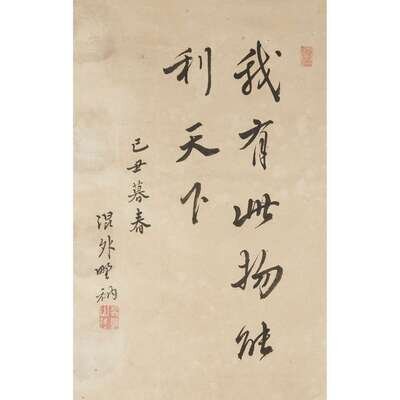 我有此物能
利天下
己丑暮春
混外野衲